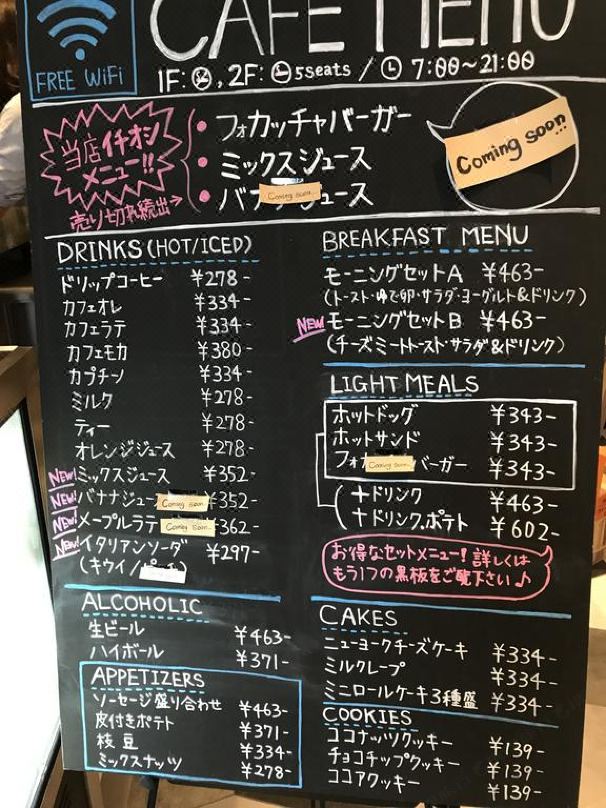 FREE WiFi
CAFE MENU
1F: , 2F: 5seats / 7:00~21:00
当店イチオシ
メニュー!!
売り切れ続出→
・フォカッチャバーガー
・ミックスジュース
・バナナジュース
Coming soon
Coming soon!!
DRINKS(HOT/ICED)
ドリップコーヒー ¥278-
カフェオレ ¥334-
カフェラテ ¥334-
カフェモカ ¥380-
カプチーノ ¥334-
ミルク ¥278-
ティー ¥278-
オレンジジュース ¥278-
NEW! ミックスジュース ¥352-
NEW! バナナジュー Coming soon ¥352-
NEW! メープルラテ Coming soon 362-
NEW! イタリアンソーダ ¥297-
(キウイ/ )
ALCOHOLIC
生ビール ¥463-
ハイボール ¥371-
APPETIZERS
ソーセージ盛り合わせ ¥463-
皮付きポテト ¥371-
枝豆 ¥334-
ミックスナッツ ¥278-
BREAKFAST MENU
モーニングセットA ¥463-
(トースト・ゆで卵・サラダ・ヨーグルト&ドリンク)
NEW! モーニングセットB ¥463-
(チーズミートトースト・サラダ&ドリンク)
LIGHT MEALS
ホットドッグ ¥343-
ホットサンド ¥343-
フォカ Coming soon バーガー ¥343-
+ドリンク ¥463-
+ドリンク,ポテト ¥602-
お得なセットメニュー!詳しくは
もう1つの黒板をご覧下さい♪
CAKES
ニューヨークチーズケーキ ¥334-
ミルクレープ ¥334-
ミニロールケーキ3種盛 ¥334-
COOKIES
ココナッツクッキー ¥139-
チョコチップクッキー ¥139-
ココアクッキー ¥139-